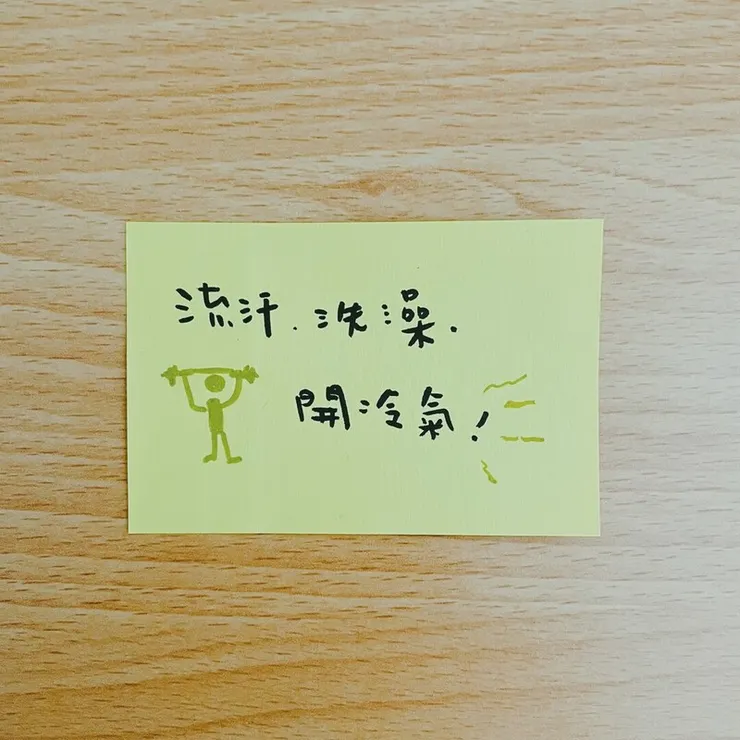 流汗.洗澡.
開冷氣!